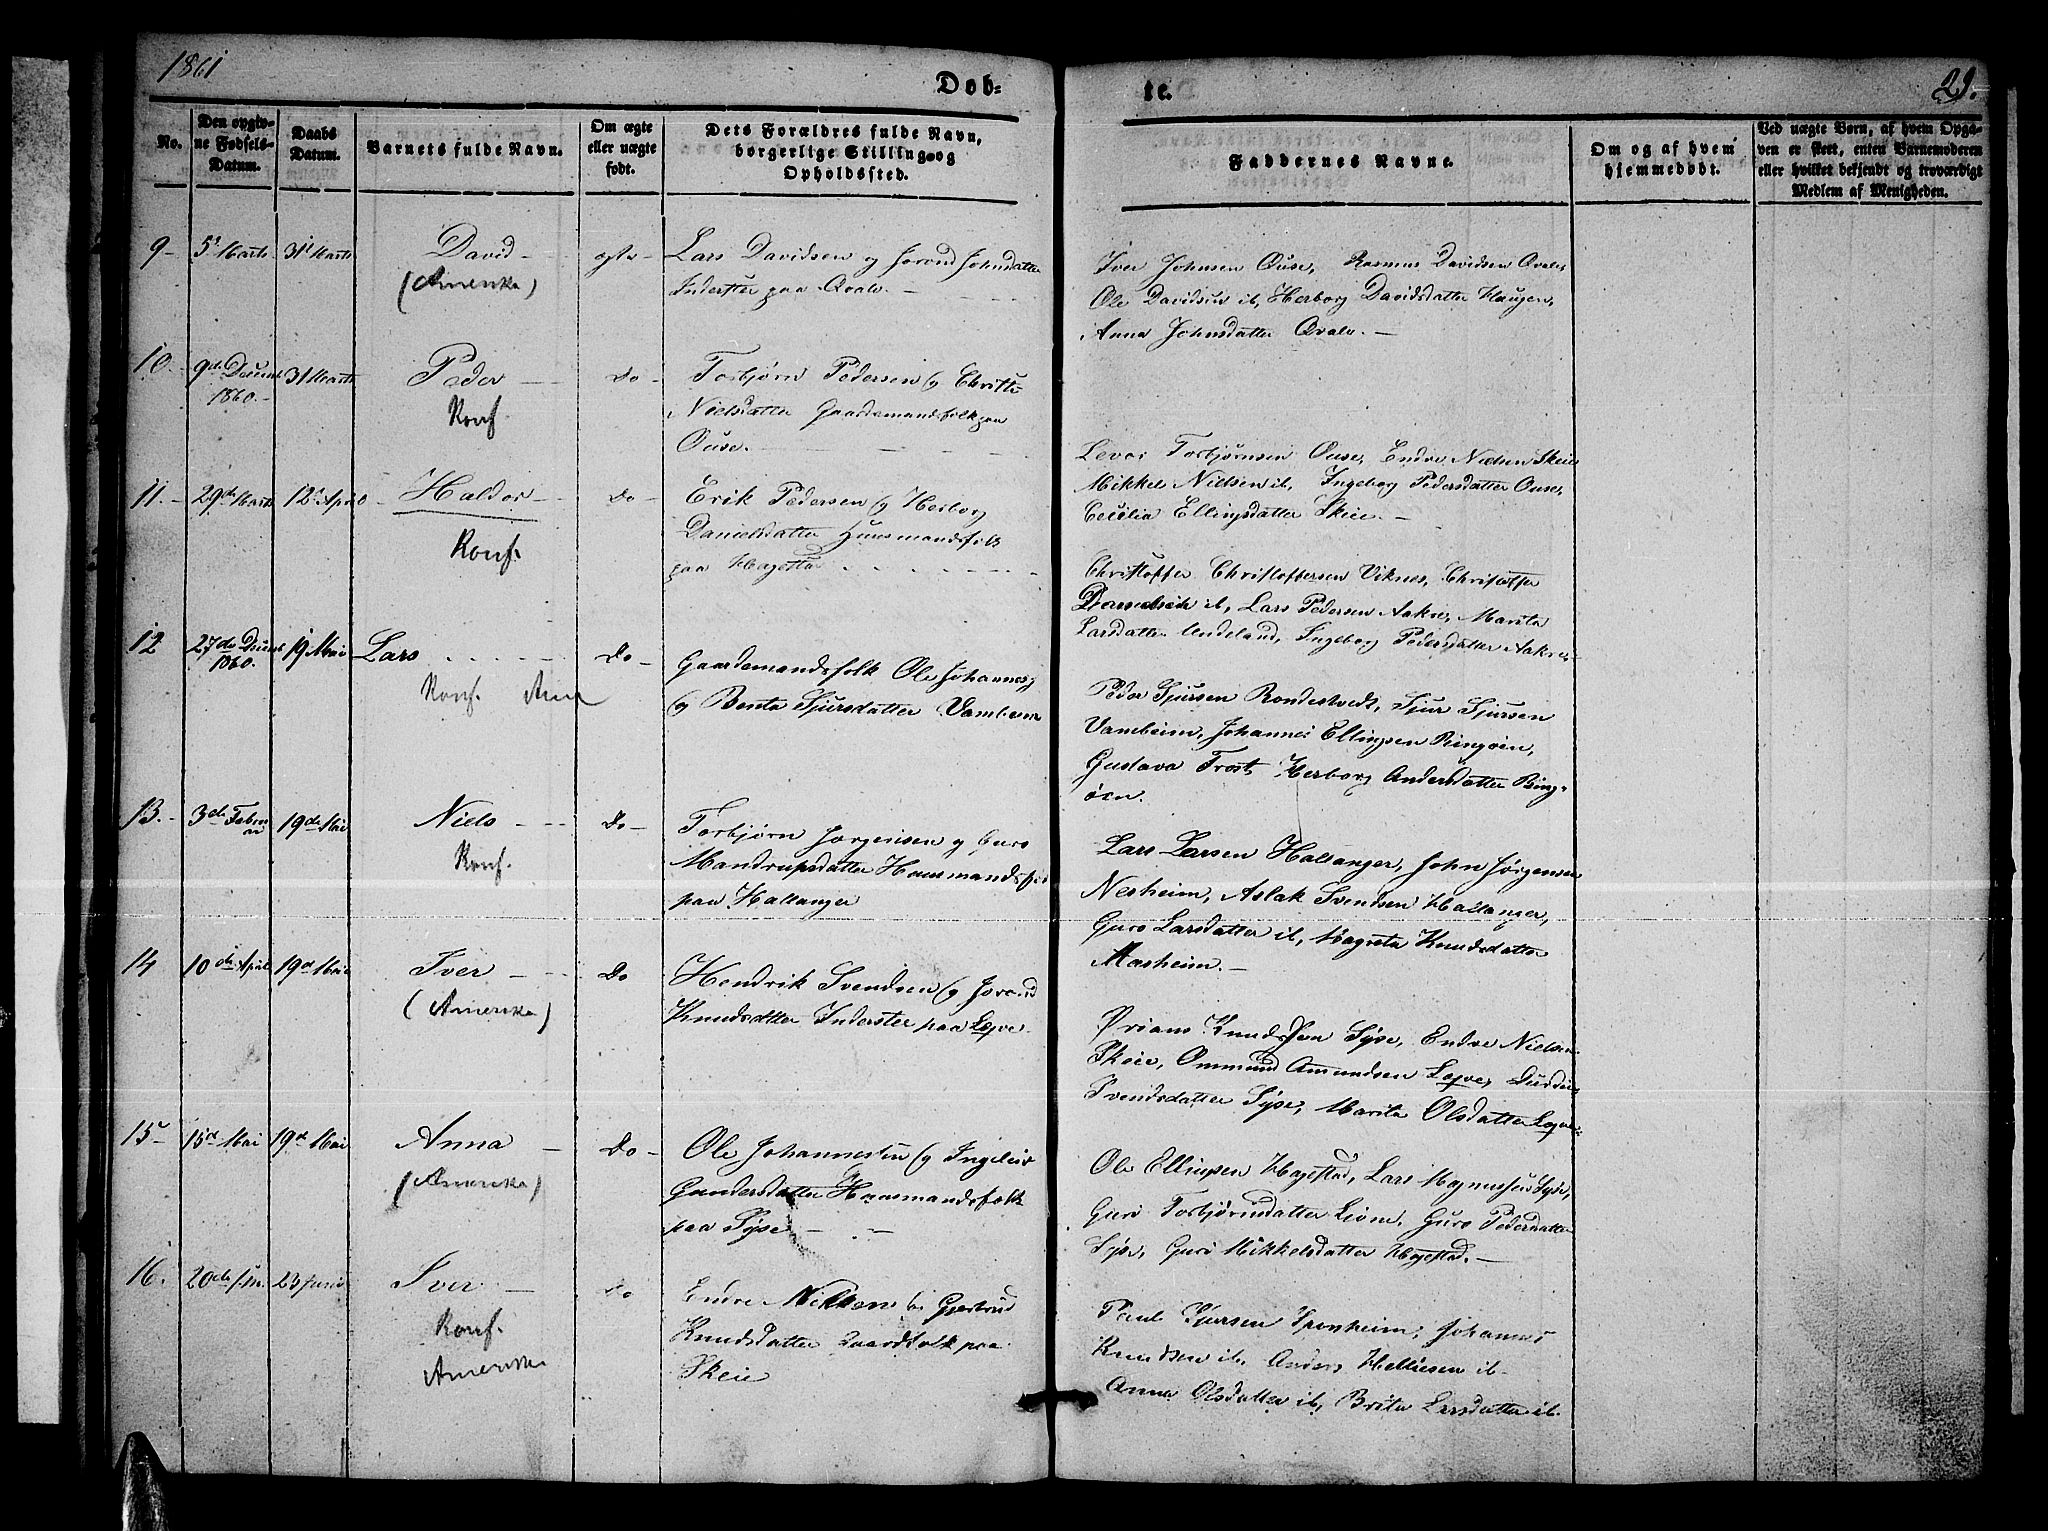 1861
Døb-
te.
29.
No.
Den opgiv-
ne Fødsels-
Datum.
Daabs
Datum.
Barnets fulde Navn.
Om ægte
eller uægte
født.
Dets Forældres fulde Navn,
borgerlige Stilling og
Opholdssted.
Faddernes Navne.
Om og af hvem
hjemmedøbt.
Ved uægte Born, af hvem Opga-
ven er skeet, enten Barnemoderen
eller hvilket bekjendt og troværdigt
Medlem af Menigheden.
9 - 5t Marts 31t Marts David - ægte -
(Amerika)
Lars Davidsen og Jorond Johnsdatter
Inderster paa Qvale. -
Iver Johnsen Ouse, Rasmus Davidsen Qvale,
Ole Davidsen ib, Herborg Davidsdatter Haugen,
Anna Johnsdatter Qvale. -
10. - 9de Decemb 31 Marts Peder - Do -
1860. -
Konf.
Torbjørn Pedersen og Christi
Nielsdatter Gaardemandsfolk paa
Ouse. -
Levor Torbjørnsen Ouse, Endre Nielsen Skeie
Mikkel Nielsen ib, Ingeborg Pedersdatter Ouse,
Cecilia Ellingsdatter Skeie. -
11. - 29de Marts 12t April Haldor - Do -
Konf.
Erik Pedersen og Herborg
Danielsdatter Huusmandsfolk
paa Hagestad
Christoffer Christoffersen Viknes, Christoffer
Danielsen ib, Lars Pedersen Aakre, Marita
Larsdatter Undeland, Ingeborg Pedersdatter Aakre
12 27de Decemb 19 Mai Lars Do -
1860.
Konf. Ame
Gaardemandsfolk Ole Johannes
og Brita Sjursdatter Vambeim
Peder Sjursen Rondestvedt, Sjur Sjursen
Vambeim, Johannes Ellingsen Ringøen,
Gustava Trost, Herborg Andersdatter Ring-
øen.
13. - 3de Febru 19de Mai Niels - Do -
ar
Konf.
Torbjørn Jørgensen og Guro
Mandrupsdatter Huusmandsfolk
paa Hallanger
Lars Larsen Hallanger, John Jørgensen
Nesheim, Aslak Svendsen Hallanger,
Guro Larsdatter ib, Magreta Knudsdatter
Masheim. -
14 10de April 19de Mai Iver - Do
(Amerika)
Hendrik Svendsen og Jorond
Knudsdatter Inderster paa Legve
Ørians Knudsen Syse, Endre Nielsen
Skeie, Ommund Amundsen Legve,
Svendsdatter Syse, Marita Olsdatter Legve
15 - 15de Mai 19de Mai Anna - Do -
(Amerika)
Ole Johannesen og Ingeleiv
Gundersdatter Huusmandsfolk
paa Syse -
Ole Ellingsen Hagestad, Lars Magnussen Syse,
Guro Torbjørnsdatter Lione, Guro Pedersdatter
Syse, Guro Mikkelsdatter Hagestad. -
16. 20de Jun. 23 Juni Iver - Do
Konf.
Amerika
Endre Nilsen og Gjertrud
Knudsdatter Gaardfolk paa
Skeie
Paul Sjursen Sponheim, Johannes
Knudsen ib, Anders Helliesen ib
Anna Olsdatter ib, Brita Larsdatter ib.